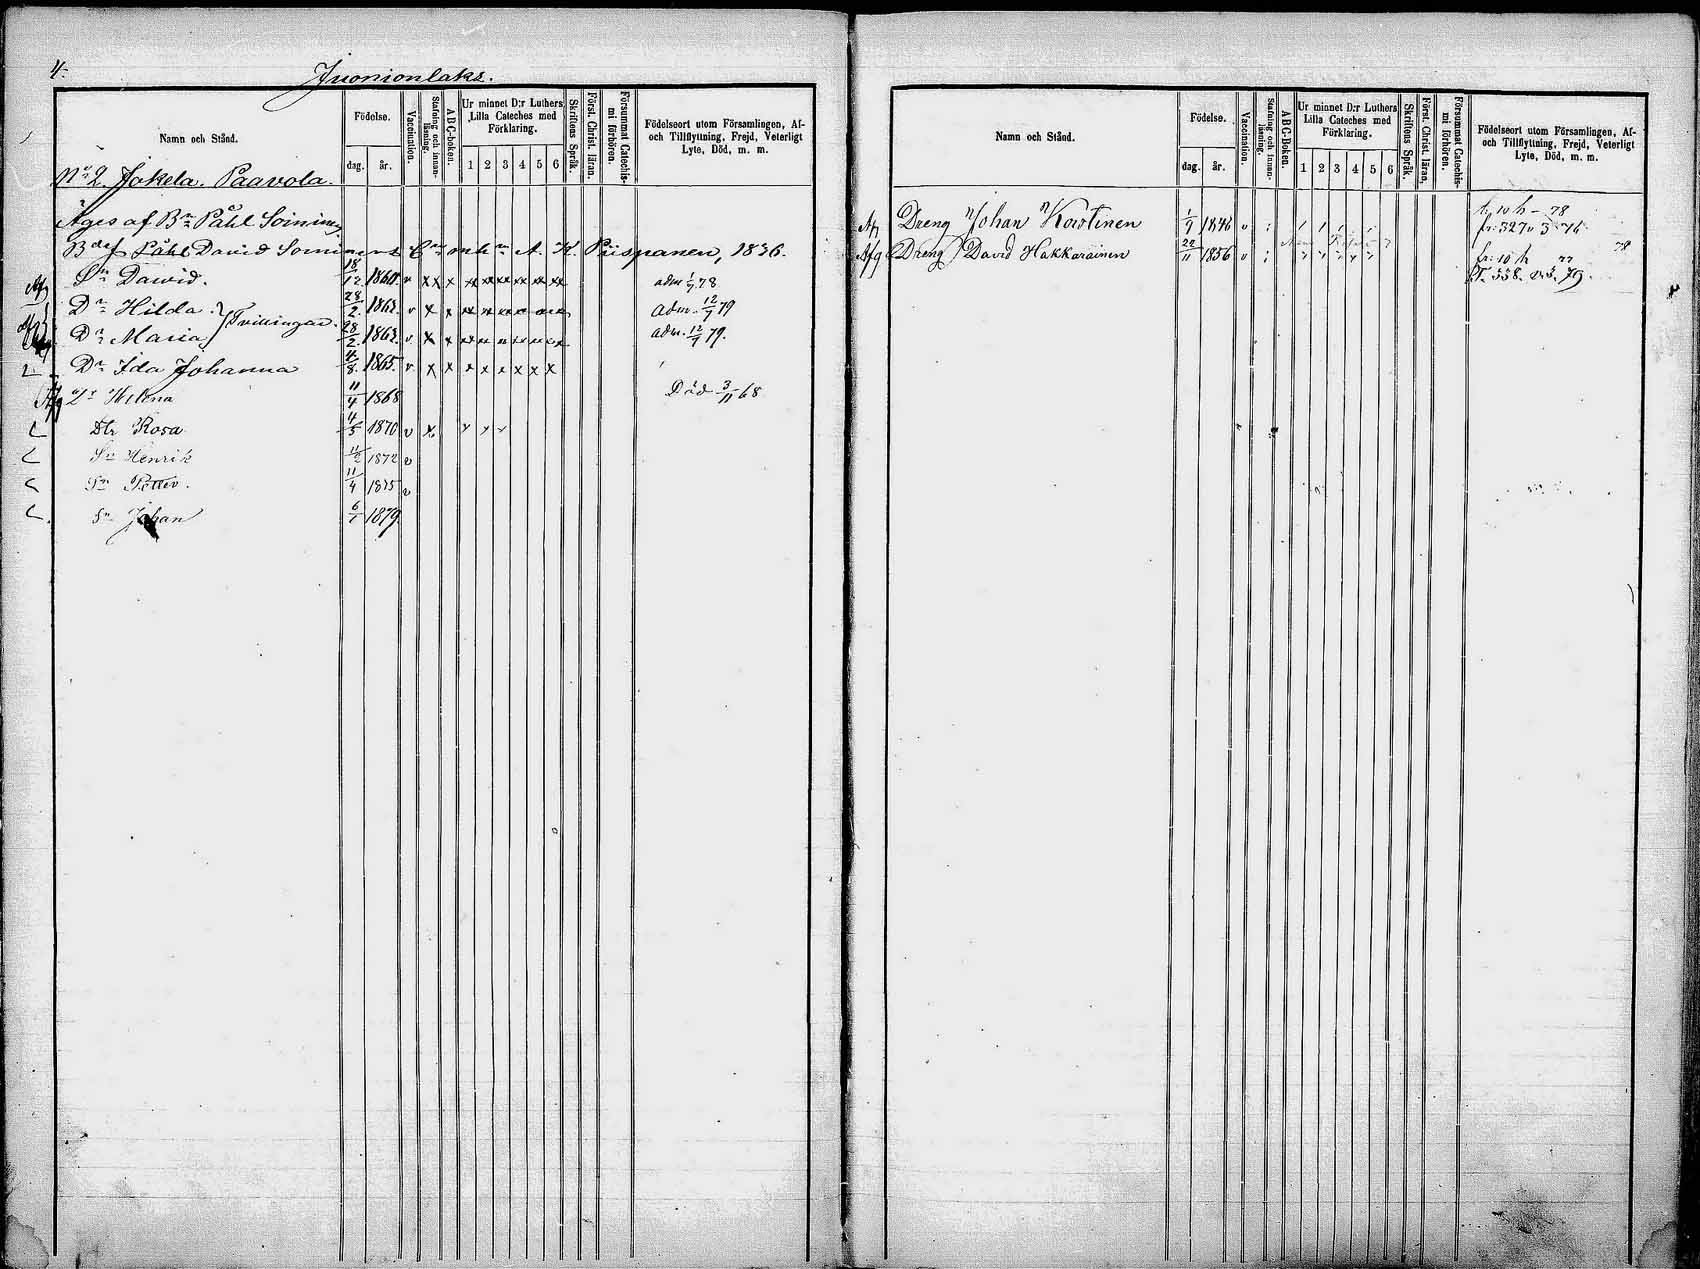 4.
Juonionlaks.
Namn och Stånd.
Födelse.
dag. år.
Vaccination.
Stafning och innan-läsning.
ABC-boken.
Ur minnet D:r Luthers Lilla Cateches med Förklaring.
1 2 3 4 5 6
Skriftens Språk.
Först. Christ. läran.
Försummat Catechis-mi förhören.
Födelseort utom Församlingen, Af- och Tillflyttning, Frejd, Veterligt Lyte, Död, m. m.
No 2. Jokela. Paavola.
Äges af Bn Påhl Soininen
David Soininens A. K. Piispanen, 1836.
Sn Dawid. 18/12 1860. v adm 1/7 78
Dr Hilda. } Tvillingar 28/2. 1863. v adm. 12/7 79
Dr Maria 28/2. 1863. v adm. 12/7 79.
Dr Ida Johanna 4/8. 1865. v
Helena 11/4 1868 Död 3/11 68
Dtr Rosa 4/5 1870 v
Sn Henrik 11/2 1872 v
Sn Petter. 11/4 1875 v
Sn Johan 6/1 1879.
Namn och Stånd.
Födelse.
dag. år.
Vaccination.
Stafning och innan-läsning.
ABC-Boken.
Ur minnet D:r Luthers Lilla Cateches med Förklaring.
1 2 3 4 5 6
Skriftens Språk.
Först. Christ. läran,
Försummat Catechis-mi förhören.
Födelseort utom Församlingen, Af- och Tillflyttning, Frejd, Veterligt Lyte, Död, m. m.
Dreng Johan 1/9 1846 v
Afg Dreng David Hakkarainen 22/11 1856 v